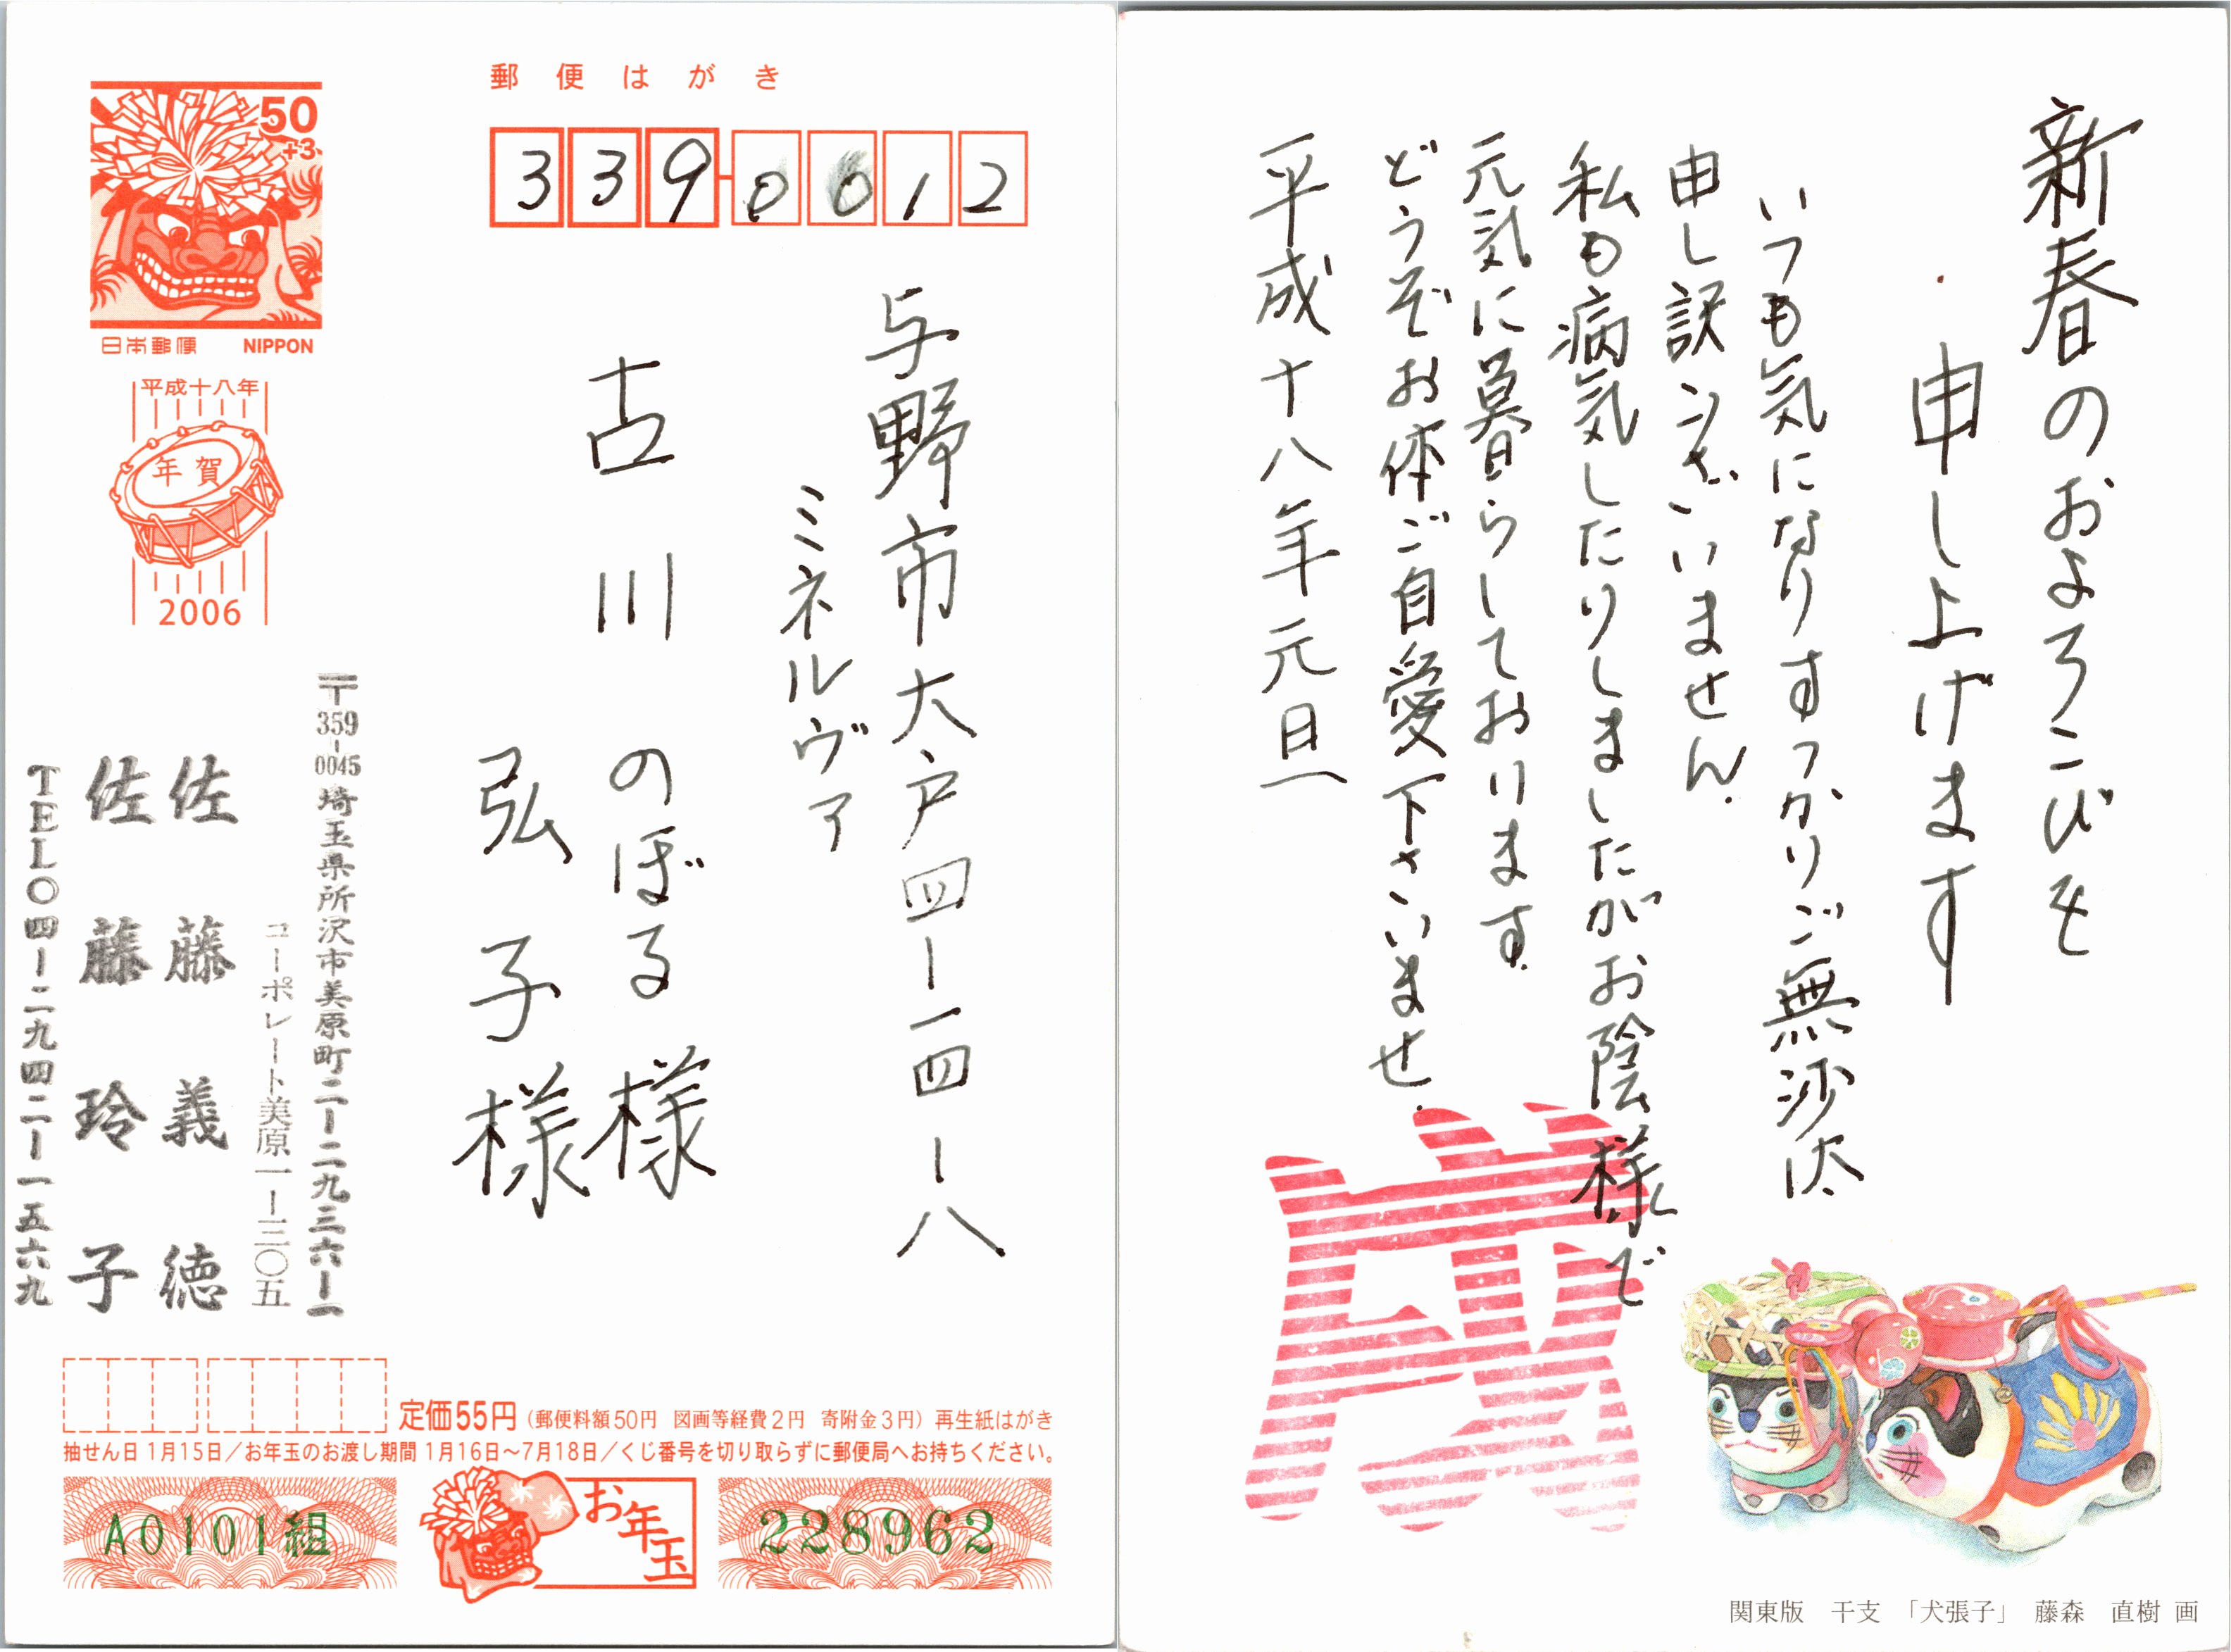 郵便はがき
50
+3
日本郵便 NIPPON
平成十八年
年賀
2006
339-0012
与野市大戸四ー一四ー八
ミネルヴァ
古川のぼる様
弘子様
〒359-0045 埼玉県所沢市美原町二ー二九三六ー一
コーポレート美原一ー二〇五
佐藤義徳
佐藤玲子
TEL〇四ー二九四二ー一五六九
定価55円(郵便料額50円 図画等経費2円 寄附金3円)再生紙はがき
抽せん日 1月15日/お年玉のお渡し期間 1月16日〜7月18日/くじ番号を切り取らずに郵便局へお持ちください。
A0101組
お年玉
228962
新春のおよろこびを
申し上げます
いつも気になりすっかりご無沙汰
申し訳ございません.
私も病気したりしましたがお陰様で
元気に暮らしております.
どうぞお体ご自愛下さいませ.
平成十八年元旦
戌
関東版 干支 「犬張子」 藤森 直樹 画